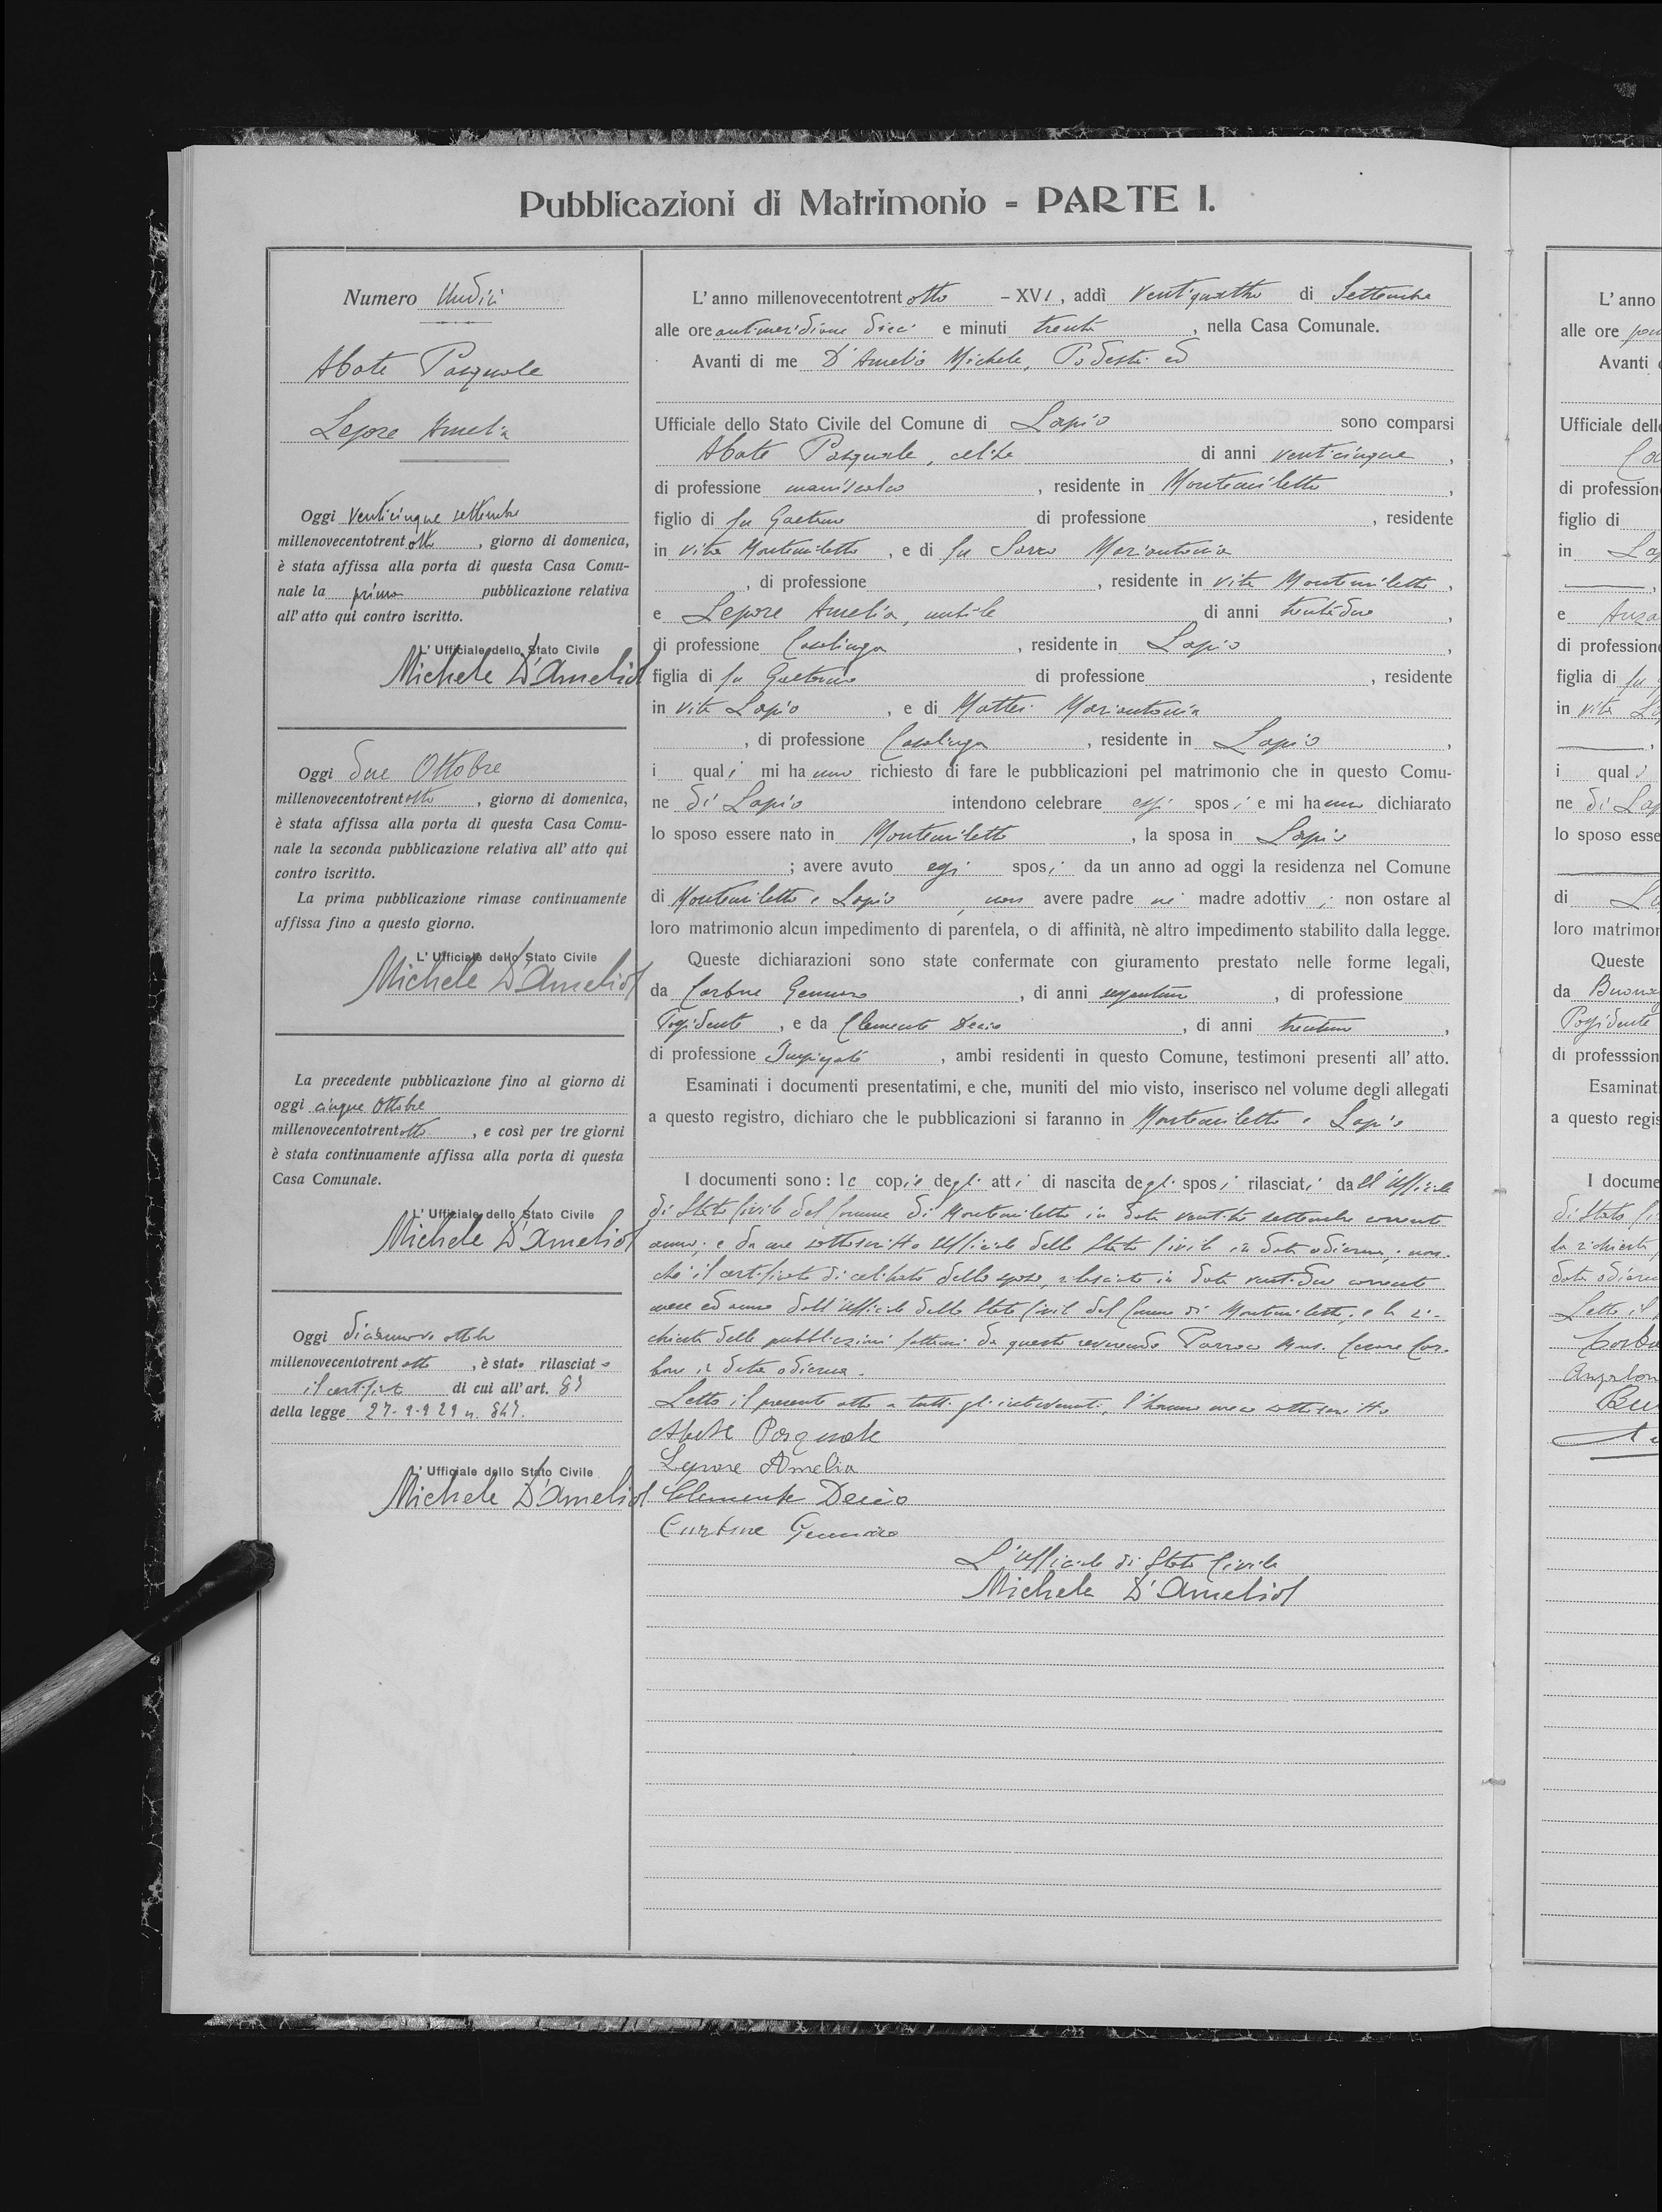 Pubblicazioni di Matrimonio - PARTE I.
Numero Undici
Abate Pasquale
Lepore Amelia
Oggi venticinque settembre
millenovecentotrentotto, giorno di domenica,
è stata affissa alla porta di questa Casa Comu-
nale la prima pubblicazione relativa
all'atto qui contro iscritto.
L'Ufficiale dello Stato Civile
Michele D'Amelio
Oggi due Ottobre
millenovecentotrentotto, giorno di domenica,
è stata affissa alla porta di questa Casa Comu-
nale la seconda pubblicazione relativa all'atto qui
contro iscritto.
La prima pubblicazione rimase continuamente
affissa fino a questo giorno.
L'Ufficiale dello Stato Civile
Michele D'Amelio
La precedente pubblicazione fino al giorno di
oggi cinque Ottobre
millenovecentotrentotto, e così per tre giorni
è stata continuamente affissa alla porta di questa
Casa Comunale.
L'Ufficiale dello Stato Civile
Michele D'Amelio
Oggi diciannove ottobre
millenovecentotrentotto, è stato rilasciato
il certificato di cui all'art.
della legge 27-
L'Ufficiale dello Stato Civile
Michele D'Amelio
L'anno millenovecentotrentotto - XVI, addì ventiquattro di Settembre
alle ore antimeridiane dieci e minuti trenta, nella Casa Comunale.
Avanti di me D'Amelio Michele, Podestà ed
Ufficiale dello Stato Civile del Comune di Lapio sono comparsi
Abate Pasquale, celibe di anni venticinque,
di professione maniscalco, residente in Montemiletto,
figlio di fu Gaetano di professione , residente
in vita Montemiletto, e di fu Mariantonia
, di professione , residente in vita Montemiletto,
e Lepore Amelia, nubile di anni trentadue,
di professione Casalinga, residente in Lapio,
figlia di fu Gaetano di professione , residente
in vita Lapio, e di Mattei Mariantonia
, di professione Casalinga, residente in Lapio,
i quali mi hanno richiesto di fare le pubblicazioni pel matrimonio che in questo Comu-
ne di Lapio intendono celebrare essi sposi e mi hanno dichiarato
lo sposo essere nato in Montemiletto, la sposa in Lapio
; avere avuto essi sposi da un anno ad oggi la residenza nel Comune
di Montemiletto e Lapio, non avere padre nè madre adottivi; non ostare al
loro matrimonio alcun impedimento di parentela, o di affinità, nè altro impedimento stabilito dalla legge.
Queste dichiarazioni sono state confermate con giuramento prestato nelle forme legali,
da Carbone Gennaro, di anni sessantuno, di professione
Possidente, e da Clemente Decio, di anni trentuno,
di professione Impiegato, ambi residenti in questo Comune, testimoni presenti all'atto.
Esaminati i documenti presentatimi, e che, muniti del mio visto, inserisco nel volume degli allegati
a questo registro, dichiaro che le pubblicazioni si faranno in Montemiletto e Lapio
I documenti sono: le copie degli atti di nascita degli sposi rilasciati dall'Ufficiale
di Stato Civile del Comune di Montemiletto in data ventitre settembre corrente
anno; e da me sottoscritto Ufficiale dello Stato Civile in data odierna; non-
chè il certificato di celibato dello sposo, rilasciato in data ventidue corrente
mese ed anno dall'Ufficiale dello Stato Civile del Comune di Montemiletto; e la ri-
chiesta delle pubblicazioni fattami da questo reverendo Parroco Cesare Car-
bone in data odierna.
Letto il presente atto a tutti gli intervenuti, l'hanno meco sottoscritto
Abate Pasquale
Lepore Amelia
Clemente Decio
Carbone Gennaro
L'Ufficiale di Stato Civile
Michele D'Amelio
L'anno
alle ore
Avanti
Ufficiale dell
di profession
figlio di
in
e
di profession
figlia di fu
in vita
i quali
ne di Lap
lo sposo esse
di
loro matrimon
Queste
da
Possidente
di professsion
Esaminat
a questo regis
I docume
di Stato Ci
la richiesta
data odierna
Letto il